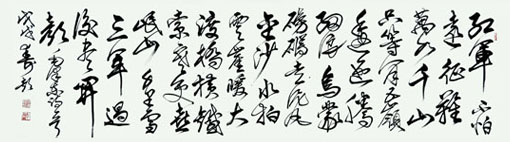 紅軍不怕
遠征難
萬水千山
只等閒五嶺
逶迤騰
細浪烏蒙
磅礴走泥丸
金沙水拍
雲崖暖大
渡橋橫鐵
索寒更喜
岷山千里雪
三軍過
後盡開
顏 毛澤東詩
戊戌